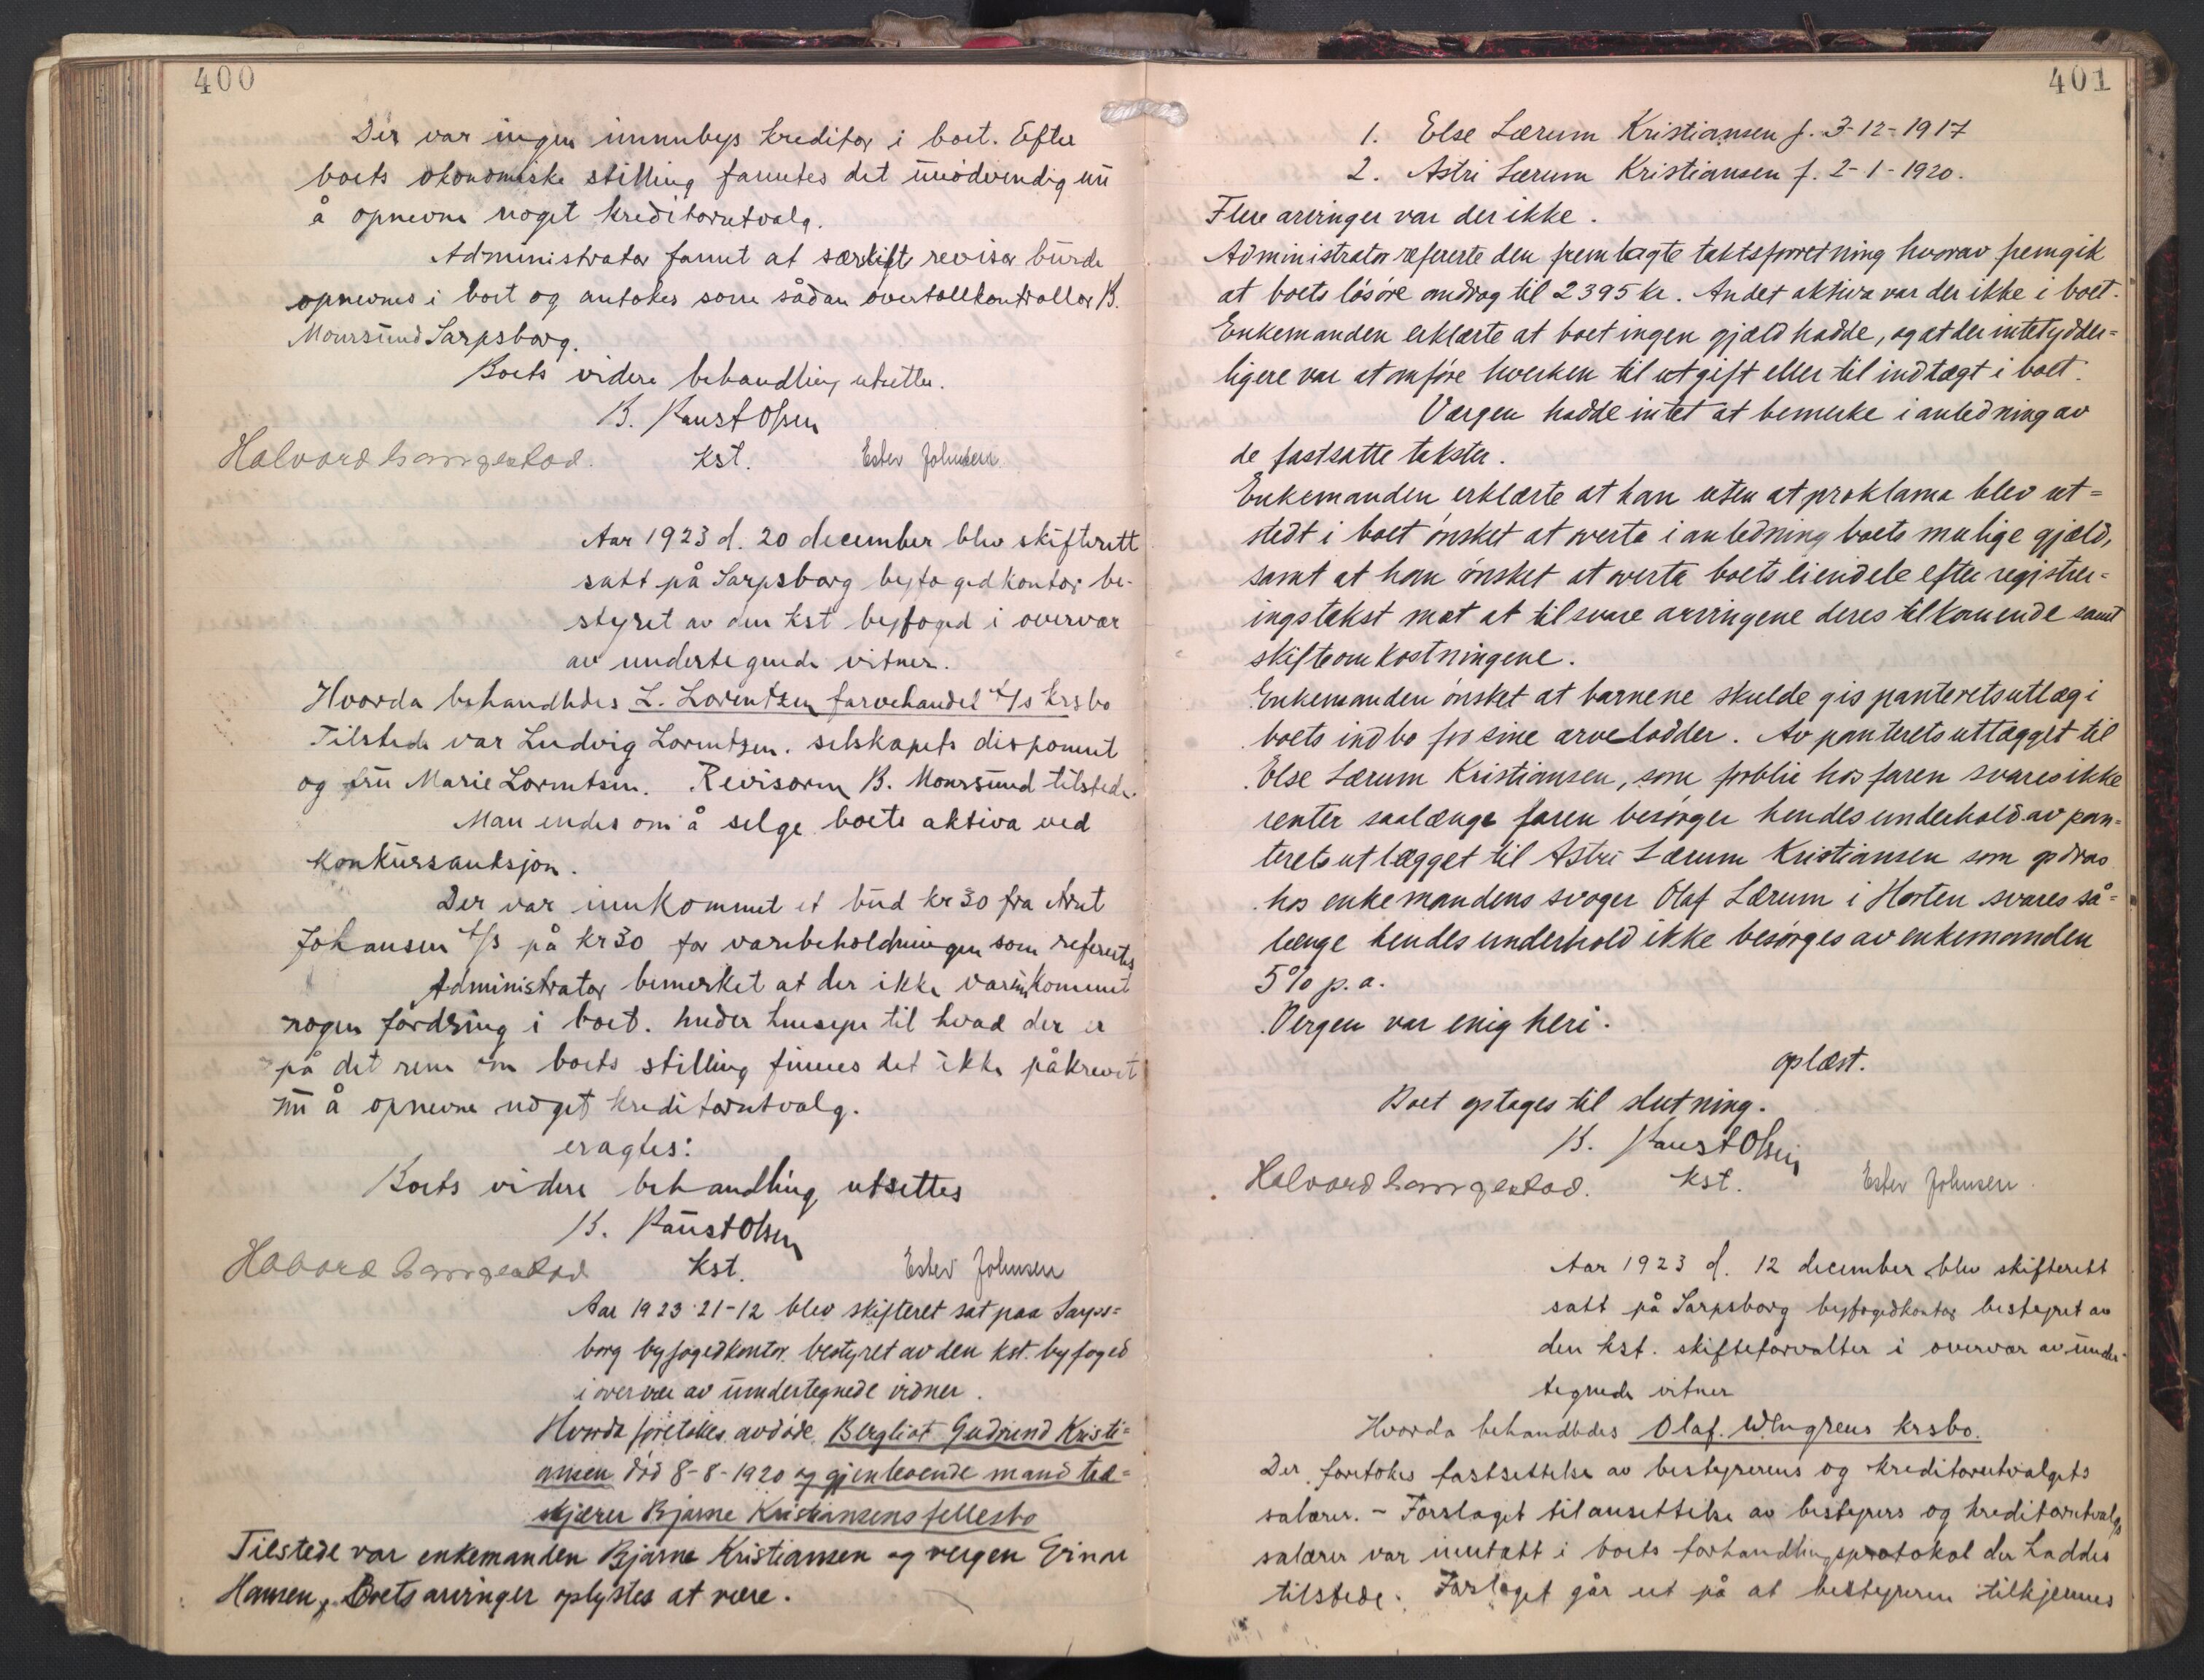 400
Der var ingen innenbys kreditor i boet. Efter
boets økonomiske stilling fanntes det unödvendig nu
å opnevne noget kreditorutvalg.
Administrator fannt at særskilt revisor burde
opnevnes i boet og antokes som sådan overtollkontrollør B.
Moursund Sarpsborg.
Boets videre behandling utsettes.
B. Paust Olsen
Halvord kst. Ester Johnsen
Aar 1923 d. 20 december blev skifterett
satt på Sarpsborg byfogedkontor be-
styret av den kst byfoged i overvær
av undertegnede vitner.
Hvorda behandledes L. Lorentzen farvehandel A/s krsbo
Tilstede var Ludvig Lorentzen. selskapets disponent
og fru Marie Lorentsen. Revisoren B. Moursund tilstede.
Man enedes om å selge boets aktiva ved
konkursauksjon.
Der var innkommet et bud kr 30 fra
Johansen A/S på kr 30 for varebeholdningen som refereretes
Administrator bemerket at der ikke var innkommet
nogen fordring i boet. under hensyn til hvad der er
på det rene om boets stilling finnes det ikke påkrevet
nu å opnevne noget kreditorutvalg.
eragtes:
Boets videre behandling utsettes
B. Paust Olsen
Halvord kst. Ester Johnsen
Aar 1923 21-12 blev skifteret sat paa Sarps=
borg byfogedkontor bestyret av den kst. byfoged
i overvær av undertegnede vidner.
Hvorda foretokes avdöde Bergliot Gudrund Kristi=
ansen död 8-8-1920 og gjenlevende mand træ=
skjærer Bjarne Kristiansens fellesbo
Tilstede var enkemanden Bjarne Kristiansen og vergen Einar
Hansen, Boets arvinger oplystes at være.
401
1. Else Lærum Kristiansen f. 3-12-1917
2. Astri Lærum Kristiansen f. 2-1-1920.
Flere arvinger var der ikke.
Administrator refererte den fremlagte takstforretning hvorav fremgik
at boets lösöre androg til 2395 kr. Andet aktiva var der ikke i boet.
Enkemanden erklærte at boet ingen gjæld hadde, og at der intet ydder=
ligere var at anföre hverken til utgift eller til indtægt i boet.
Værgen hadde intet at bemerke i anledning av
de fastsatte takster.
Enkemanden erklærte at han uten at proklama blev ut=
stedt i boet önsket at overta i anledning boets mulige gjæld,
samt at han önsket at overta boets eiendele efter registrer=
ingstakst mot at tilsvare arvingene deres tilkomende samt
skifteomkostningene.
Enkemanden önsket at barnene skulde gis panteretsutlæg i
boets indbo for sine arvelodder. Av panteretsutlægget til
Else Lærum Kristiansen, som forblir hos faren svares ikke
renter saalænge faren besörger hendes underhold. av pan=
teretsutlægget til Astri Lærum Kristiansen som opdras
hos enkemandens svoger Olaf Lærum i Horten svares så=
længe hendes underhold ikke besörges av enkemanden
5% p. a.
Vergen var enig heri.
oplæst.
Boet optages til slutning.
B. Paust Olsen
Halvord kst. Ester Johnsen
Aar 1923 d. 12 december blev skifterett
satt på Sarpsborg byfogedkontor bestyret av
den kst. skifteforvalter i overvær av under-
tegnede vitner
Hvorda behandledes Olaf. Wlugrens krsbo.
Der foretokes fastsettelse av bestyrerens og kreditorutvalgets
salærer. - Forslaget til ansettelse av bestyrers og kreditorutvalgs
salærer var inntatt i boets forhandlingsprotokol der haddes
tilstede. Forslaget går ut på at bestyreren tilkjennes